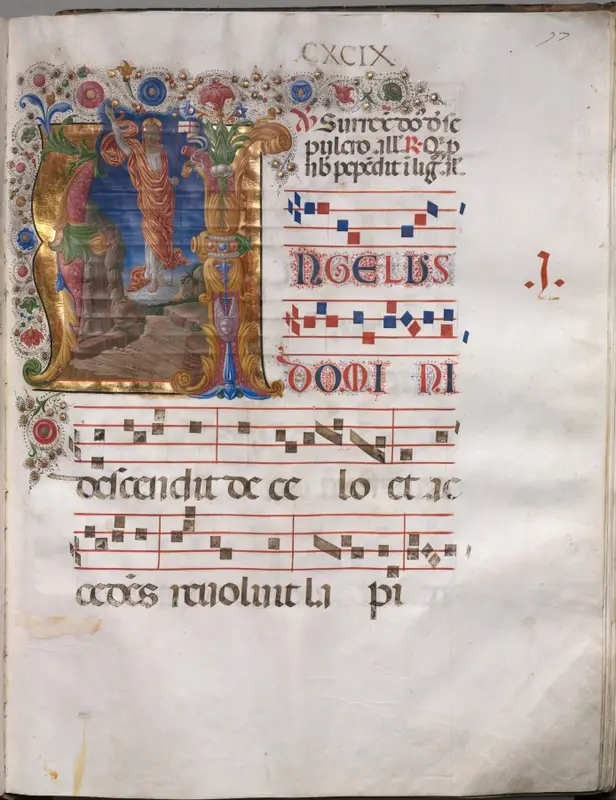 CXCIX
Surrex dō dse
pulcro all R Q p
nb pepēdit ilig
ANGELUS
DOMINI
descendit de celo et ac
cedēs revolvit lapi
.I.